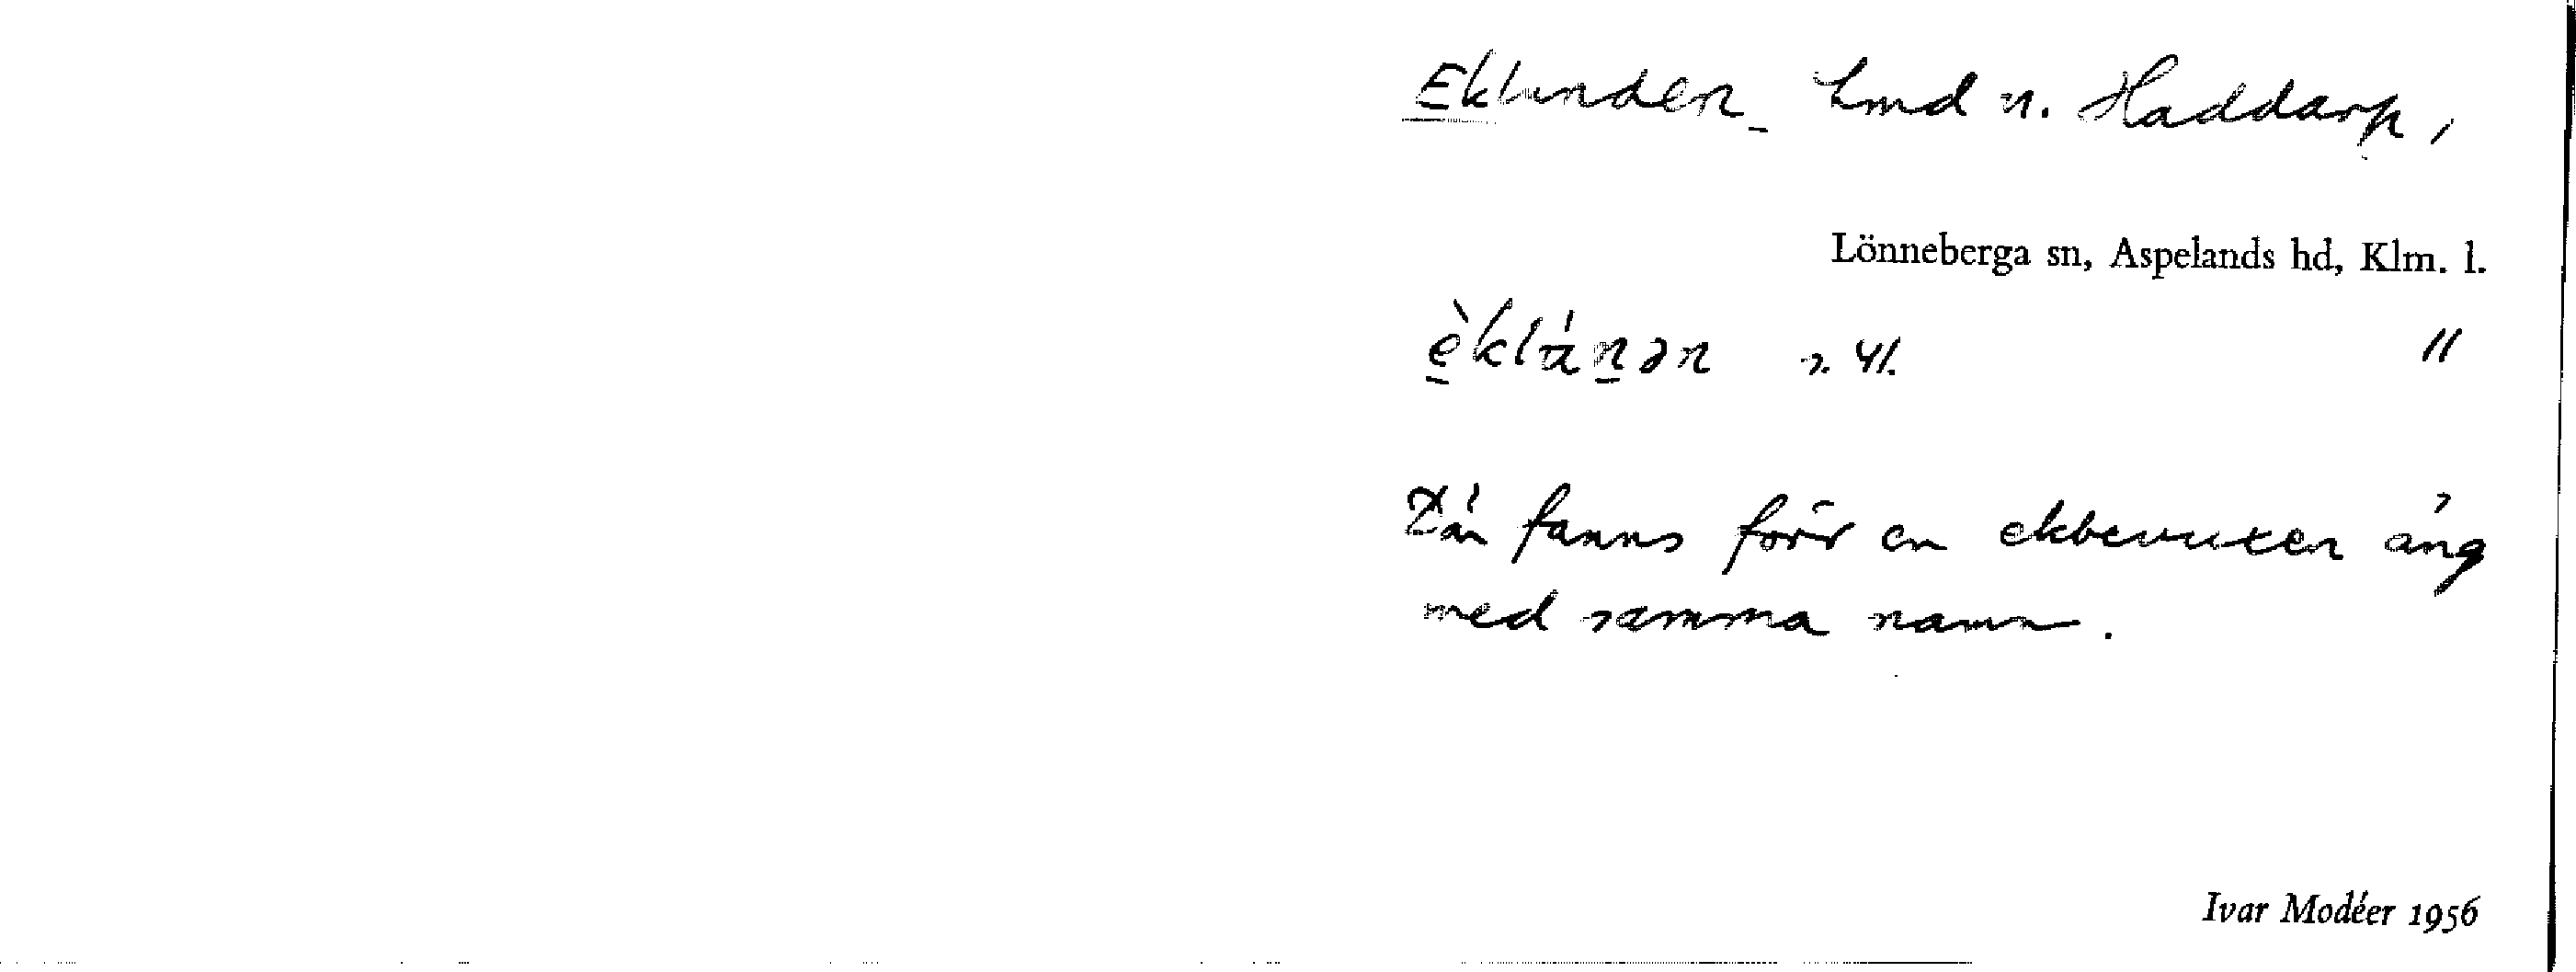 Eklunden Lmd u. Haddarp,
Lönneberga sn, Aspelands hd, Klm. l.
èklánən 2 41. "
Där fanns förr en ekbevuxen äng
med samma namn.
Ivar Modéer 1956